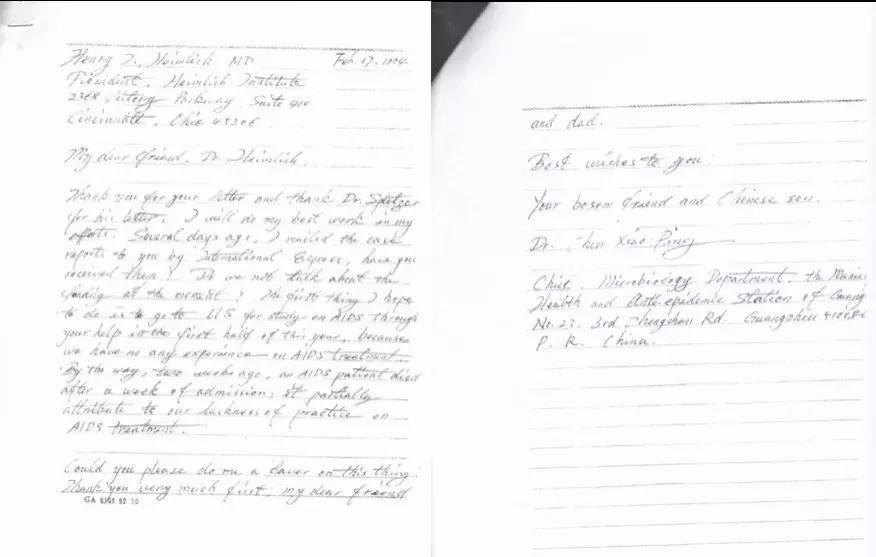 Henry J. Heimlich MD Feb. 17. 1994.
President, Heimlich Institute
2368 Victory Parkway, Suite 410
Cincinnati, Ohio 45206
My dear friend, Dr. Heimlich,
Thank you for your letter and thank Dr. Spitzer
for his letter. I will do my best work on my
efforts. Several days ago, I mailed the case
reports to you by International Express, have you
received them? Do we not talk about the
funding at the moment? The first thing I hope
to do is to go to U S for study on AIDS through
your help in the first half of this year, because
we have no any experience on AIDS treatment.
By the way, two weeks ago, an AIDS patient died
after a week of admission; it partially
attribute to our lackness of practice on
AIDS treatment.
Could you please do me a favor on this thing.
Thank you very much first, my dear friend
GA 92 10
and dad.
Best wishes to you.
Your bosom friend and Chinese son.
Dr. Chen Xiao Ping
Chief, Microbiology Department, the Munic
Health and Anti-epidemic Station of Guang
No. 23. 3rd Zhongshan Rd. Guangzhou
P. R. China.